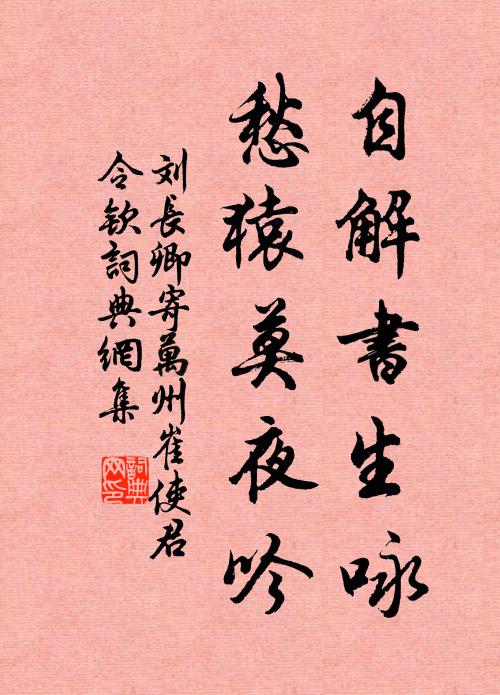 自解書生咏
愁猿莫夜吟
刘長卿寄萬州崔使君
令欽詞典網集
詞典
网印